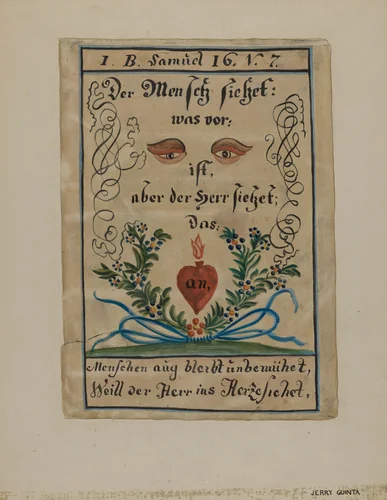 I. B. Samuel 16. V. 7.
Der Mensch siehet:
was vor:
ist,
aber der Herr siehet;
Das:
an,
Menschen aug bleibt unbemühet,
Weill der Herr ins Herze siehet,
JERRY GUINTA